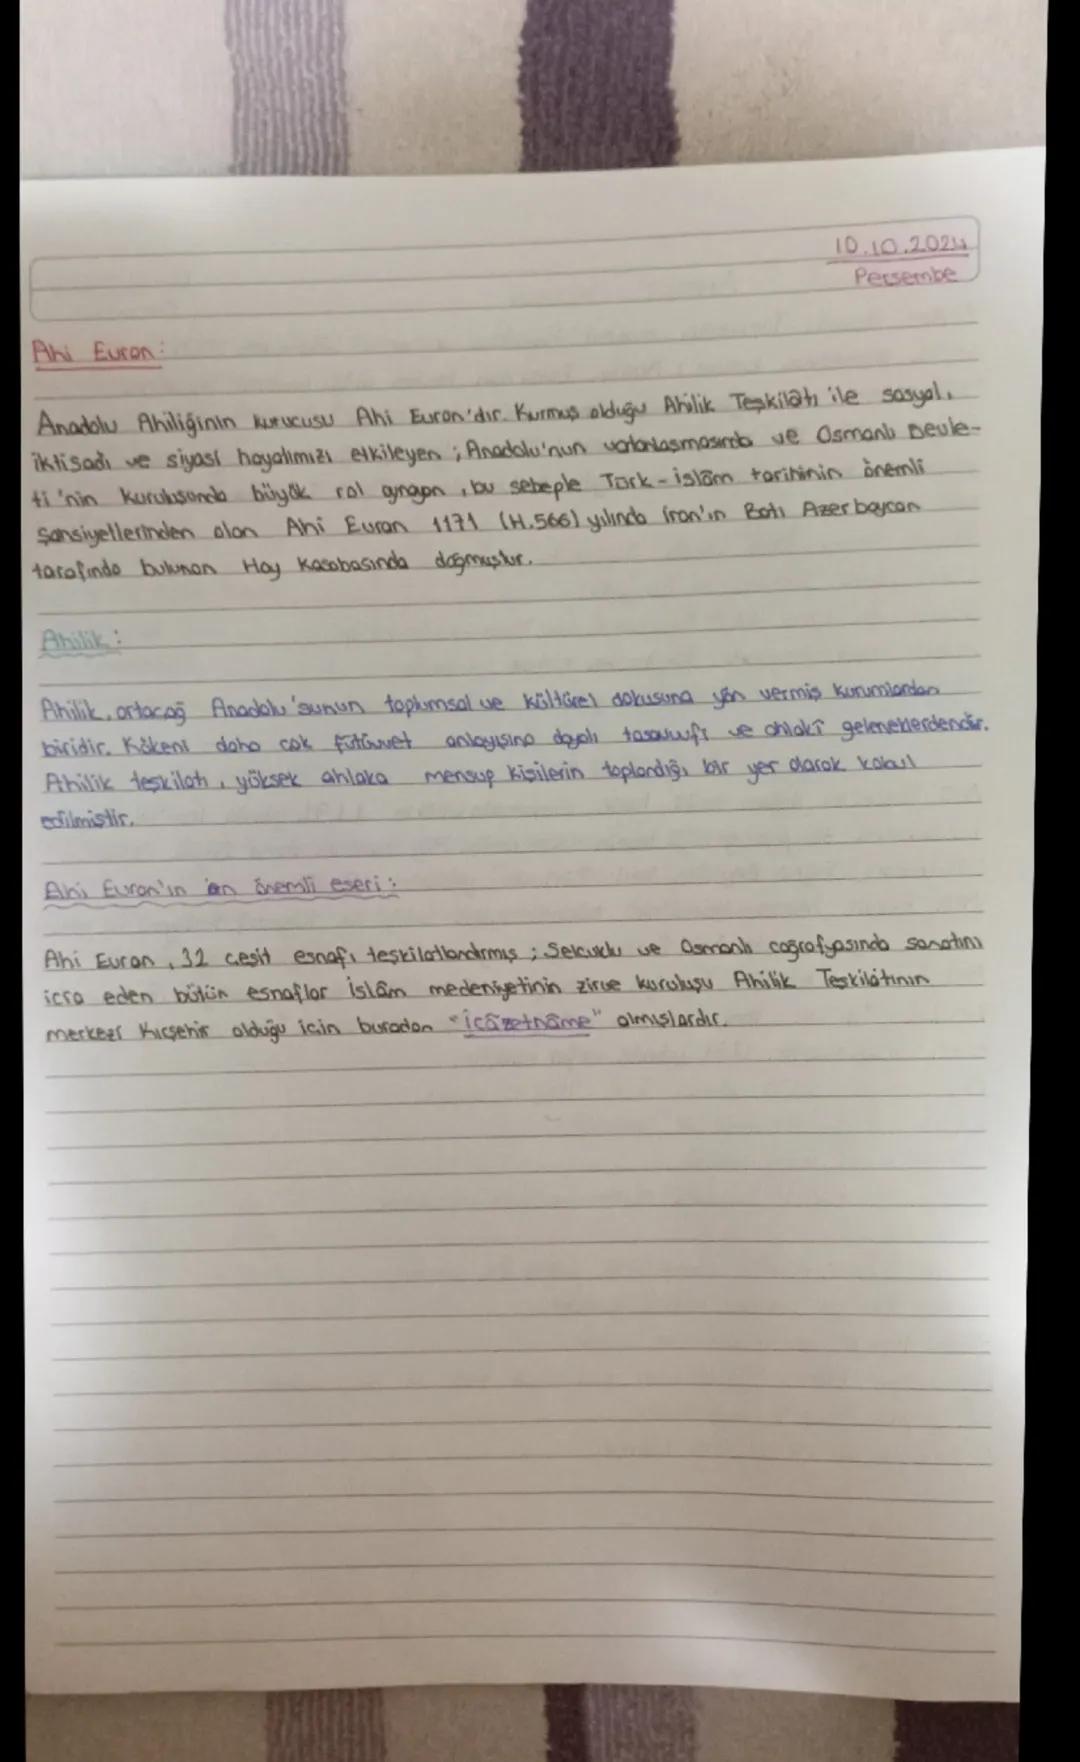 10.10.2024
Perşembe
Ahi Evran:
Anadolu Ahiliğinin kurucusu Ahi Evran'dır. Kurmuş olduğu Ahilik Teşkilâtı ile sosyal,
iktisadi ve siyasi hayatımızı etkileyen ; Anadolu'nun vatanlaşmasında ve Osmanlı Devle-
ti'nin kuruluşunda büyük rol oynayan, bu sebeple Türk-islâm tarihinin önemli
şansiyellerinden olan Ahi Evran 1171 (H.566) yılında İran'ın Batı Azerbaycan
tarafında bulunan Hoy Kasabasında doğmuştur.
Ahilik:
Ahilik, ortaçağ Anadolu'sunun toplumsal ve kültürel dokusuna yön vermiş kurumlardan
biridir. Kökeni daha çok fütüvvet anlayışına dayalı tasavvufi ve ahlakî geleneklerdendir.
Ahilik teşkilatı, yüksek ahlaka mensup kişilerin toplandığı bir yer olarak kabul
edilmiştir.
Ahi Evran'ın en önemli eseri:
Ahi Evran, 32 çeşit esnafı teşkilatlandırmış ; Selçuklu ve Osmanlı coğrafyasında sanatını
icra eden bütün esnaflar İslâm medeniyetinin zirve kuruluşu Ahilik Teşkilâtının
merkezi Kırşehir olduğu için buradan "icâzetnâme" almışlardır.